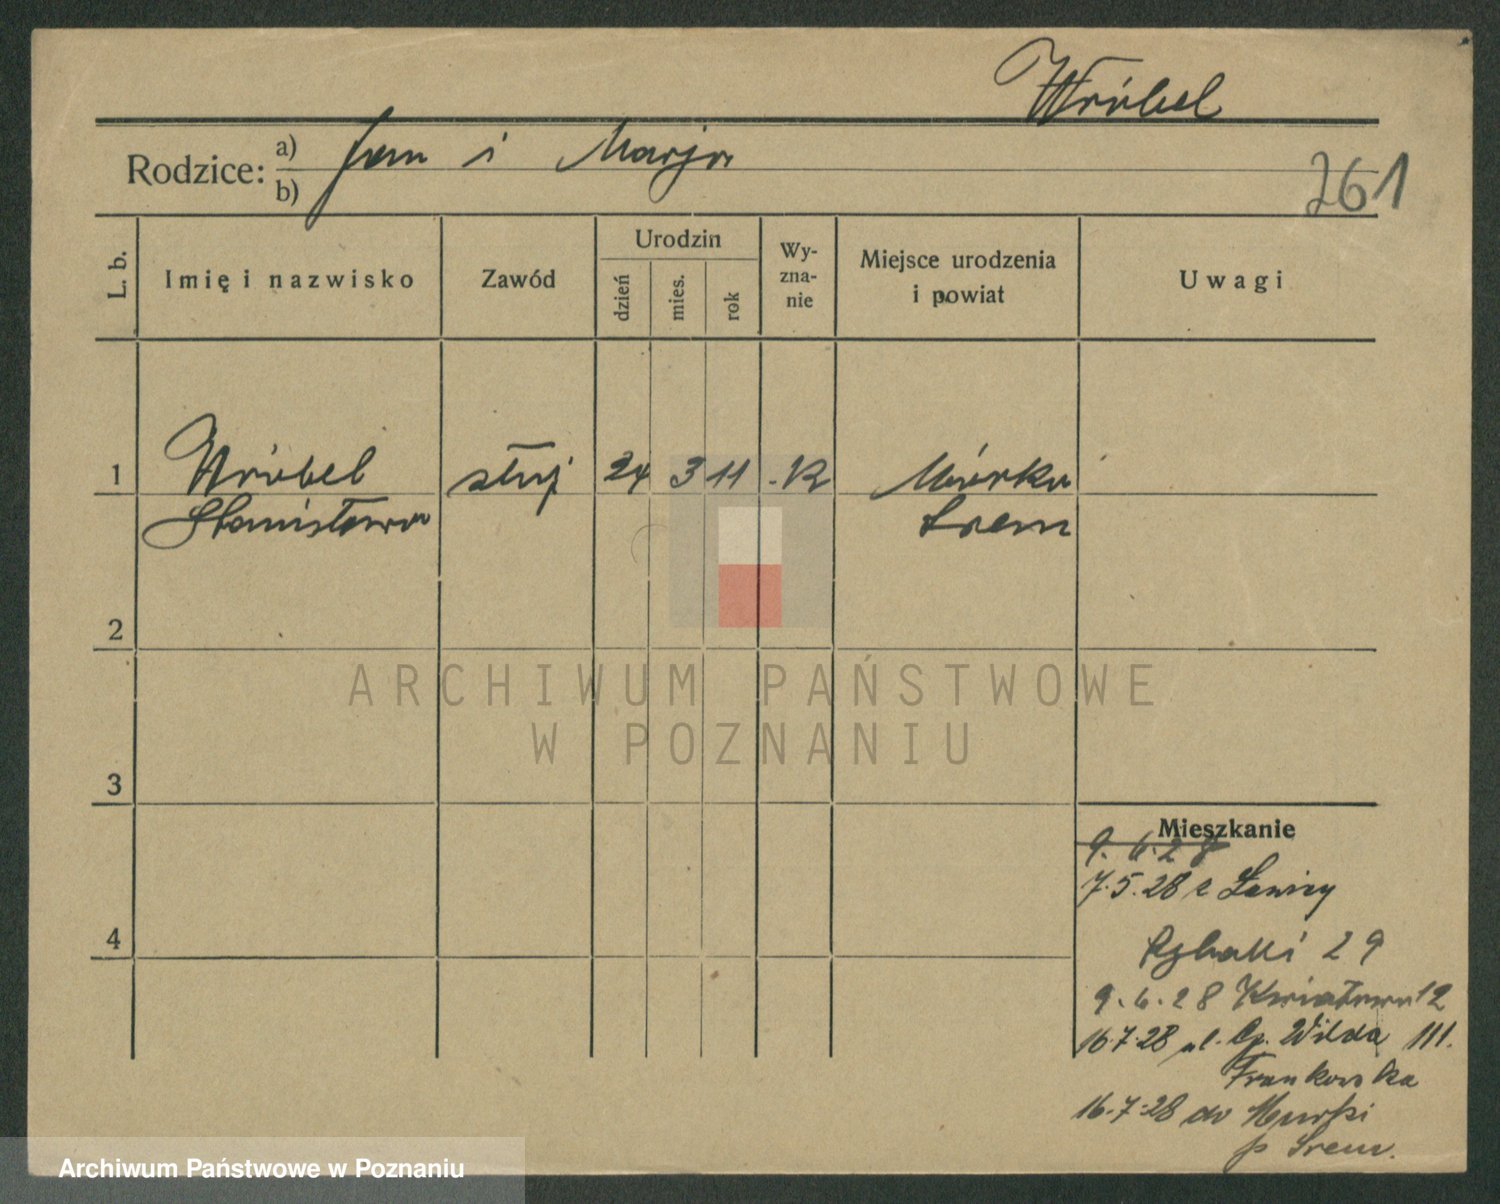 Wróbel
Rodzice: a) Jan i Marja
b)
261
L. b.
Imię i nazwisko
Zawód
Urodzin
dzień
mies.
rok
Wy-
zna-
nie
Miejsce urodzenia
i powiat
Uwagi
1
Wróbel
Stanisława
służ
24
3
11
K
Mórka
Śrem
2
3
4
Mieszkanie
9. 6. 28
7.5.28 z Ławicy
Rybaki 29
9.6.28 Kwiatowa 12
16.7.28 ul. Gr. Wilda 111.
Frankowska
16.7.28 do Murki
p Śrem.
ARCHIWUM PAŃSTWOWE
W POZNANIU
Archiwum Państwowe w Poznaniu